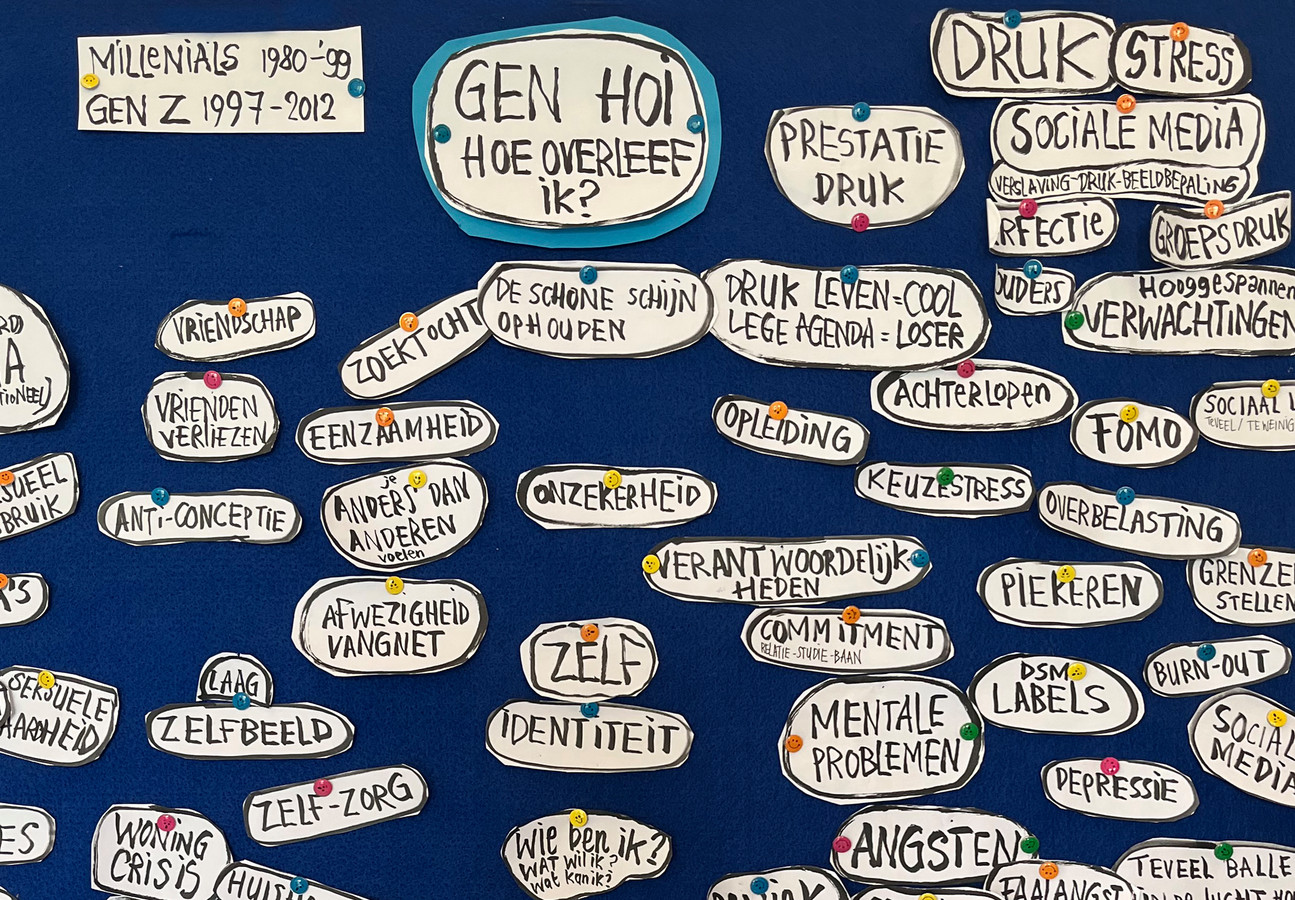 MILLENIALS 1980-'99
GEN Z 1997-2012
GEN HOI
HOE OVERLEEF
IK?
DRUK
STRESS
PRESTATIE
DRUK
SOCIALE MEDIA
VERSLAVING-DRUK-BEELDBEPALING
RFECTIE
GROEPSDRUK
OUDERS
HOOGGESPANNEN
VERWACHTINGEN
VRIENDSCHAP
ZOEKTOCHT
DE SCHONE SCHIJN
OPHOUDEN
DRUK LEVEN=COOL
LEGE AGENDA = LOSER
ACHTERLOPEN
VRIENDEN
VERLIEZEN
EENZAAMHEID
OPLEIDING
FOMO
SOCIAAL
TEVEEL / TE WEINIG
SUEEL
BRUIK
ANTI-CONCEPTIE
je
ANDERS DAN
ANDEREN
voelen
ONZEKERHEID
KEUZESTRESS
OVERBELASTING
VERANTWOORDELIJK-
HEDEN
PIEKEREN
GRENZEN
STELLEN
AFWEZIGHEID
VANGNET
ZELF
COMMITMENT
RELATIE-STUDIE-BAAN
BURN-OUT
SEKSUELE
AARDHEID
LAAG
ZELFBEELD
IDENTITEIT
MENTALE
PROBLEMEN
DSM
LABELS
SOCIAL
MEDIA
ZELF-ZORG
DEPRESSIE
ES
WONING
CRISIS
WIE BEN IK?
WAT WIL IK?
WAT KAN IK?
ANGSTEN
FAALANGST
TEVEEL BALLE